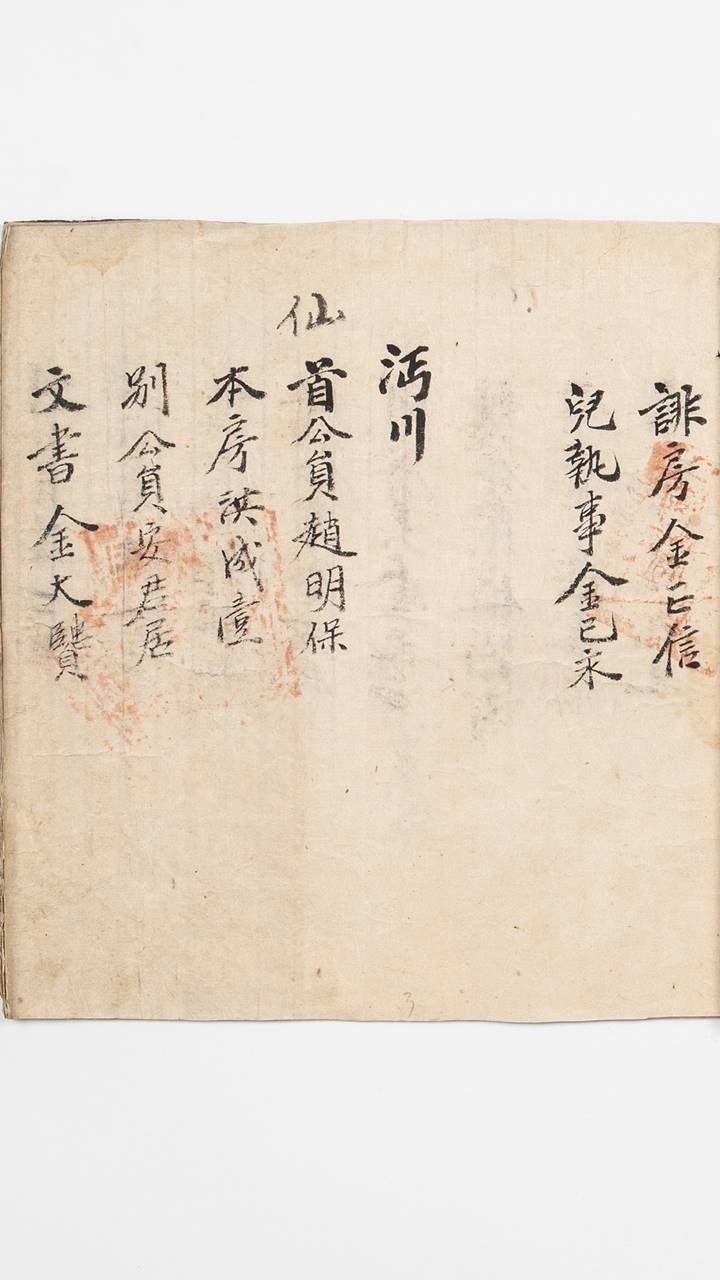 誹房金已信
兒執事金已永
沔川
仙
首公員趙明保
本房洪成壹
別公員安君居
文書金大贒
3